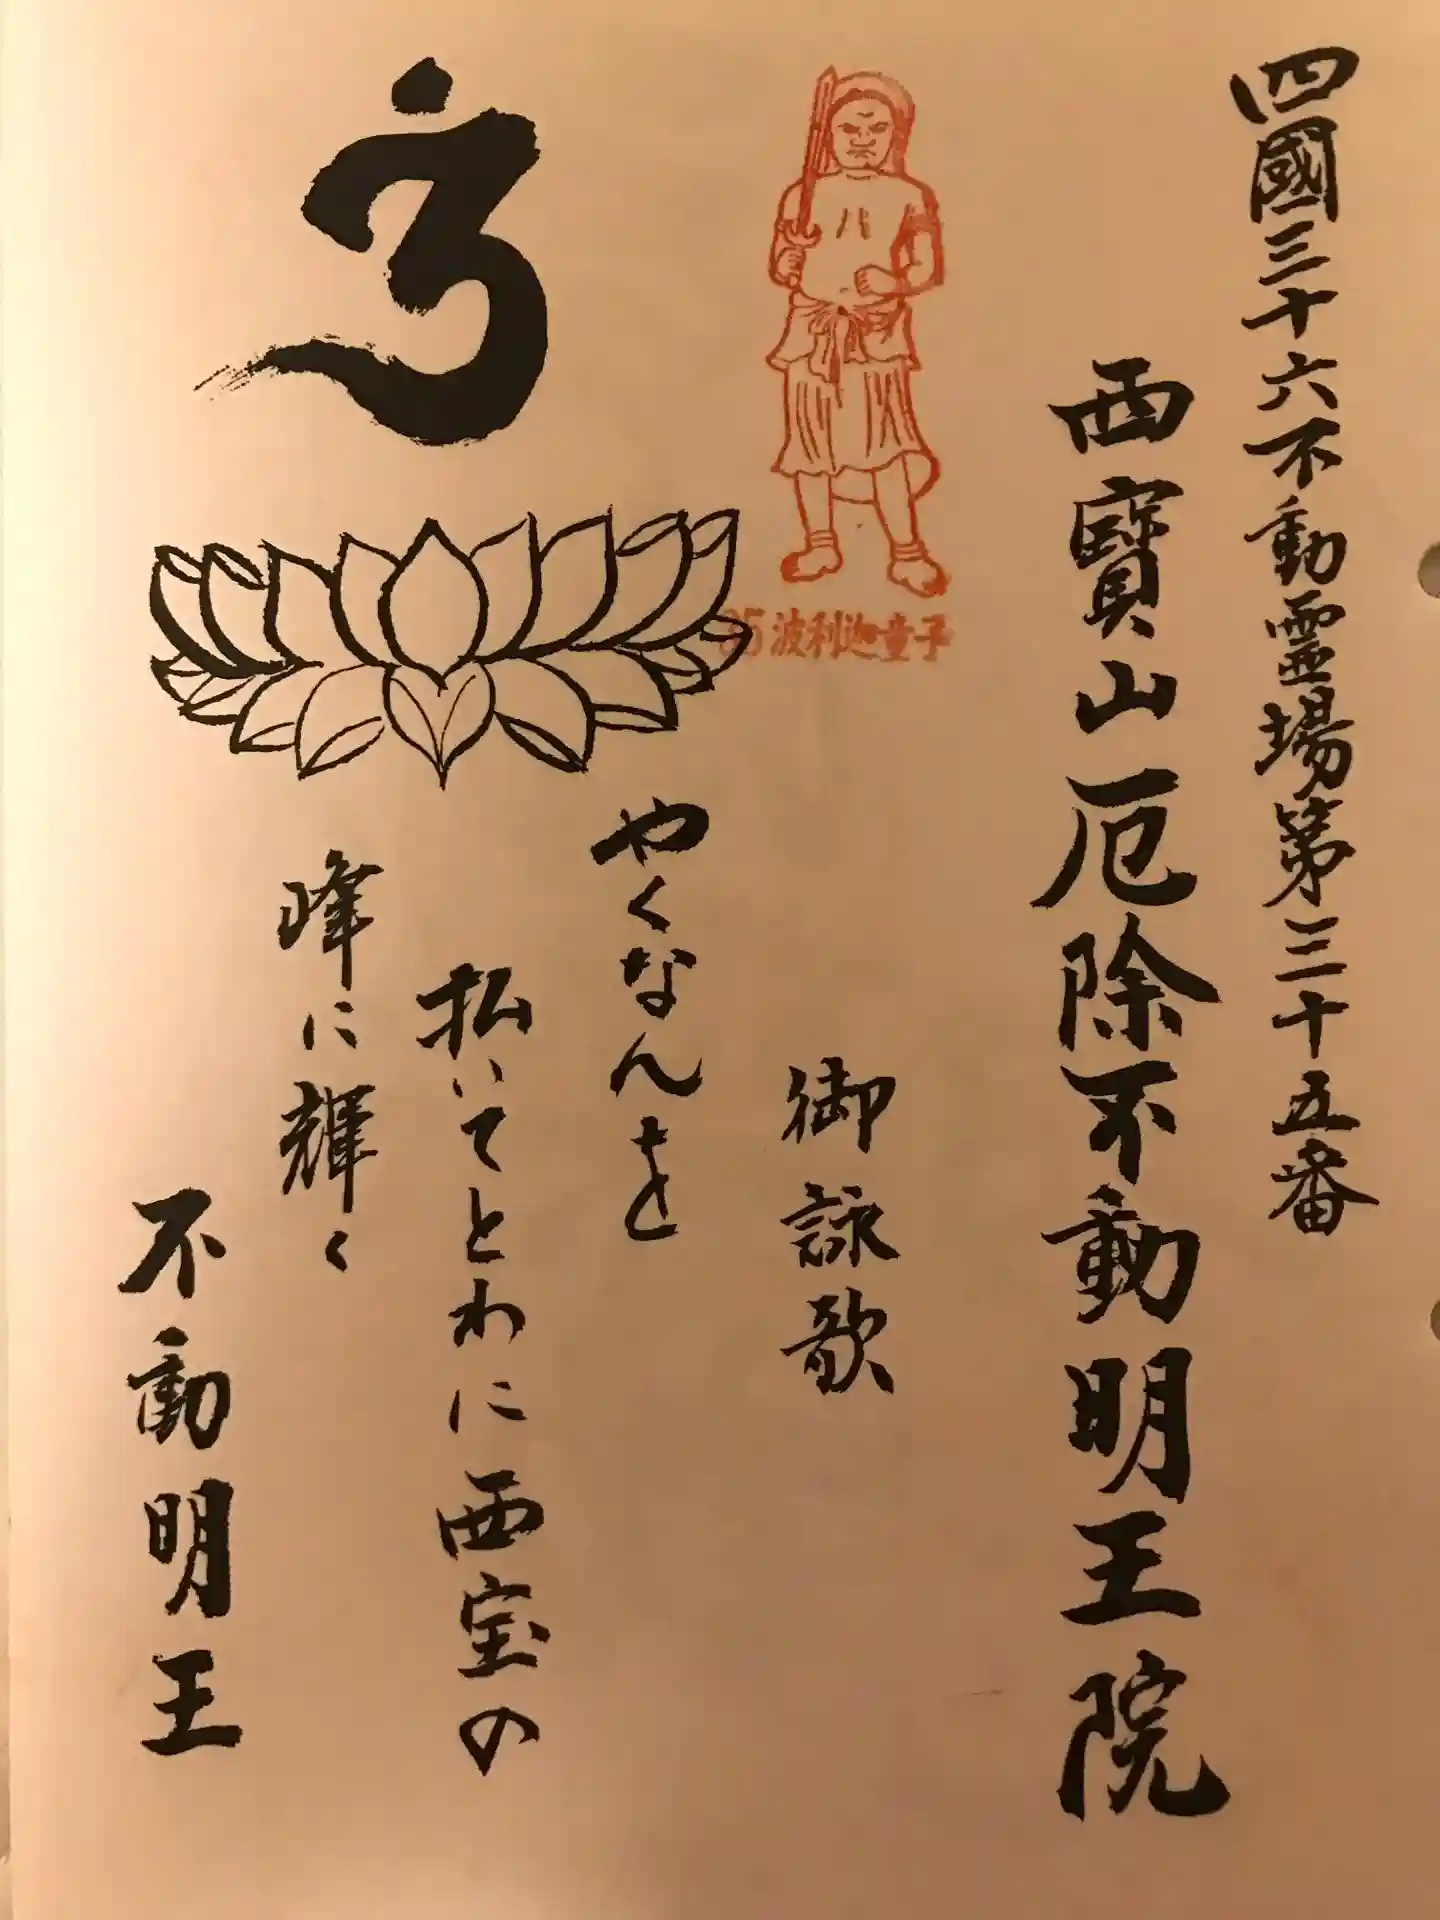 四國三十六不動霊場第三十五番
西寳山厄除不動明王院
35波利迦童子
御詠歌
やくなんを
払いてとわに西宝の
峰に輝く
不動明王